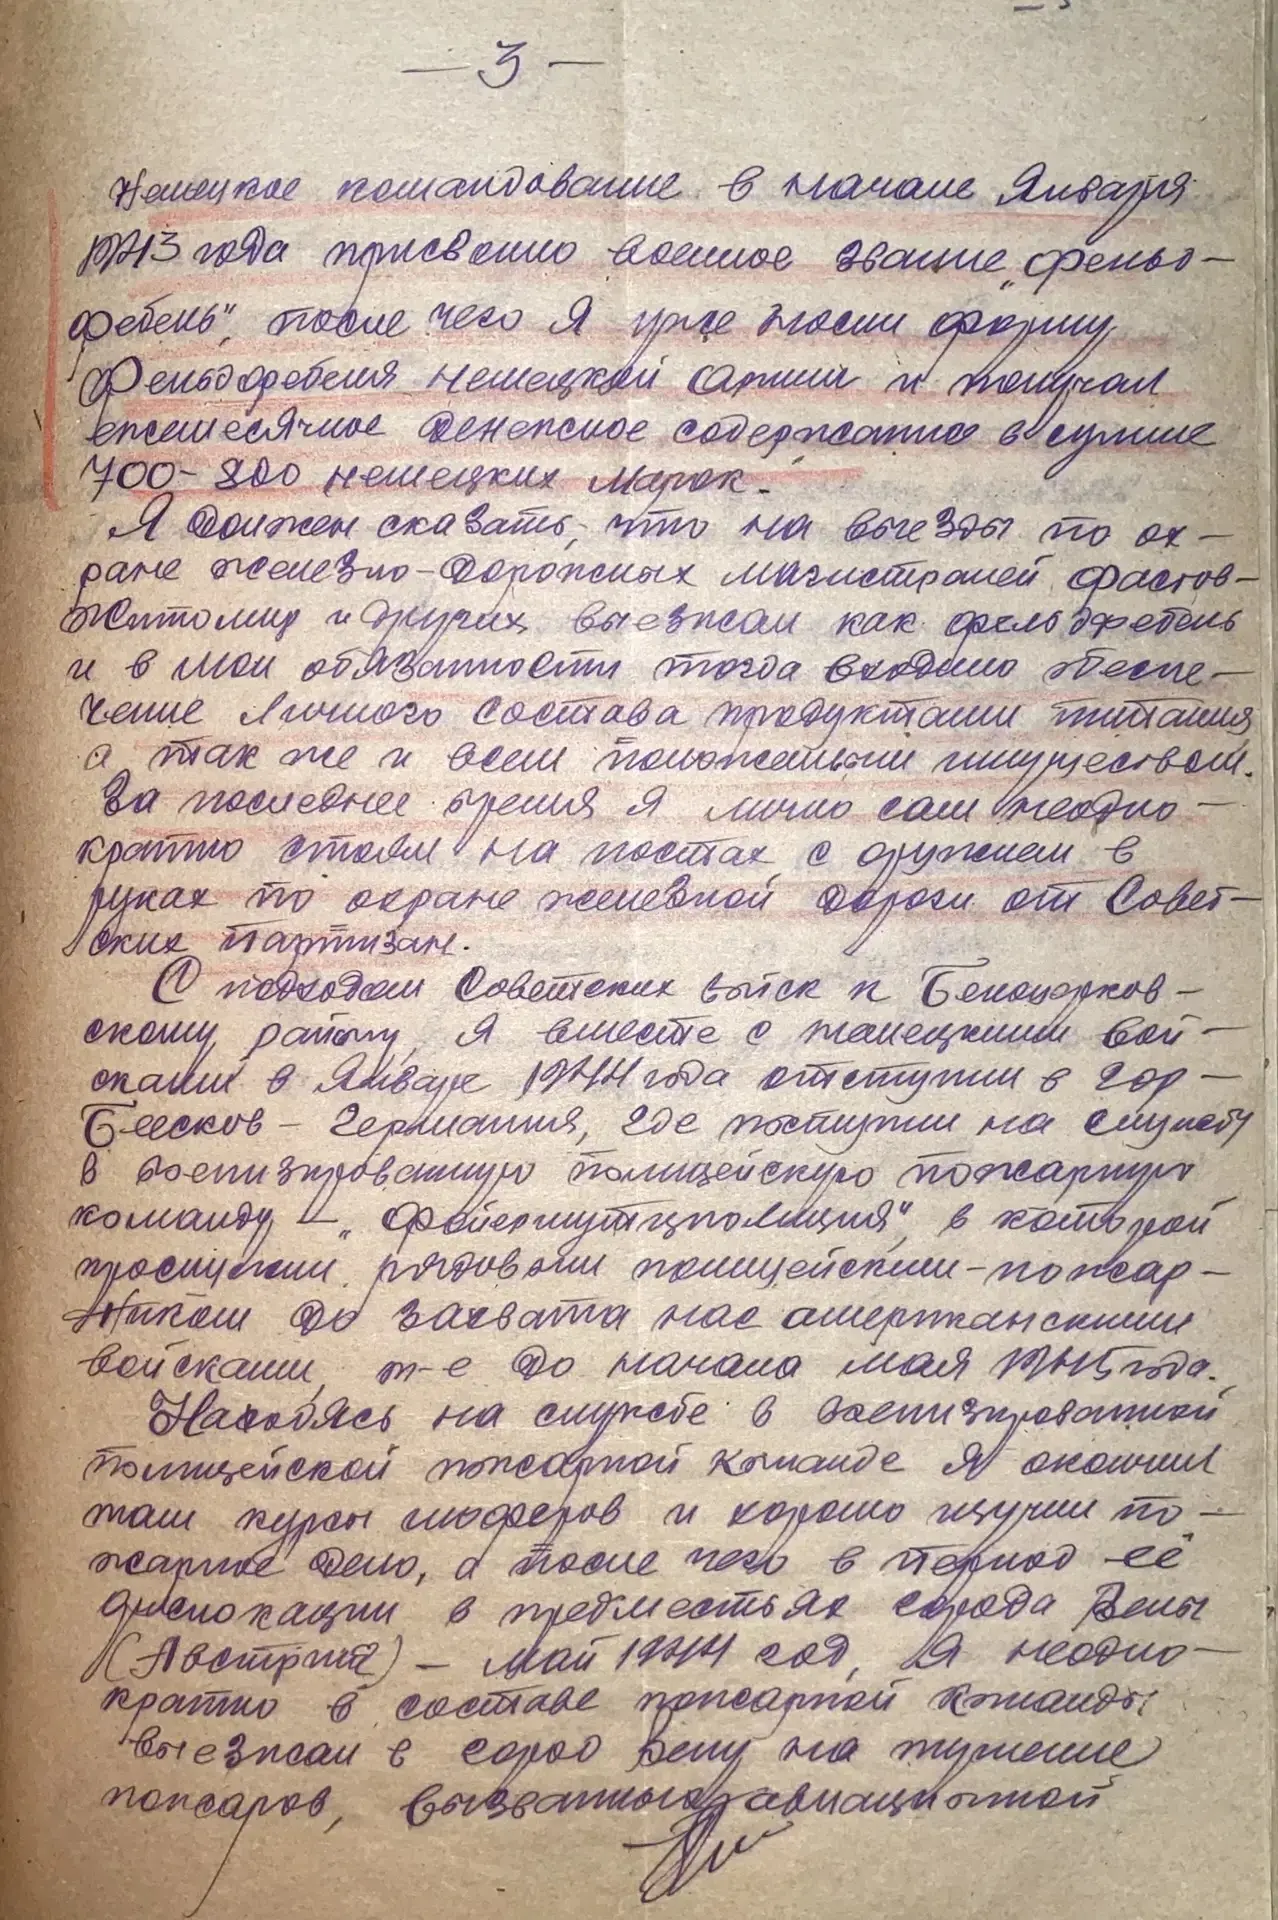 — 3 —
Немецкое командование в начале Января
1943 года присвоило военное звание „фельд-
фебель", после чего Я уже носил форму
Фельдфебеля немецкой армии и получал
ежемесячное денежное содержание в сумме
700-800 немецких марок.
Я должен сказать, что на выезды по ох-
ране железно-дорожных магистралей Фастов-
Житомир и других, выезжал как фельдфебель
и в мои обязанности тогда входило обеспе-
чение личного состава продуктами питания,
а так же и всем положеным имуществом.
За последнее время Я лично сам неодно-
кратно стоял на постах с оружием в
руках по охране железной дороги от Совет-
ских партизан.
С подходом Советских войск к Белоцерков-
скому району, Я вместе с немецкими вой-
сками в Январе 1944 года отступил в гор-
Беесков - Германия, где поступил на службу
в военизированную полицейскую пожарную
команду — „Файершутцполиция", в которой
прослужил рядовым полицейским-пожар-
ником до захвата нас американскими
войсками, т-е до начала мая 1945 года.
Находясь на службе в военизированной
полицейской пожарной команде Я окончил
там курсы шоферов и хорошо изучил по-
жарное дело, а после чего в период её
дислокации в предместьях города Вены
(Австрия) - май 1944 год, Я неодно-
кратно в составе пожарной команды
выезжал в город Вену на тушение
пожаров, вызванных авиационной